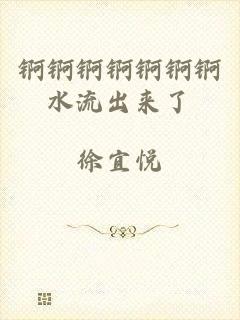 锕锕锕锕锕锕锕
水流出来了
徐宜悦